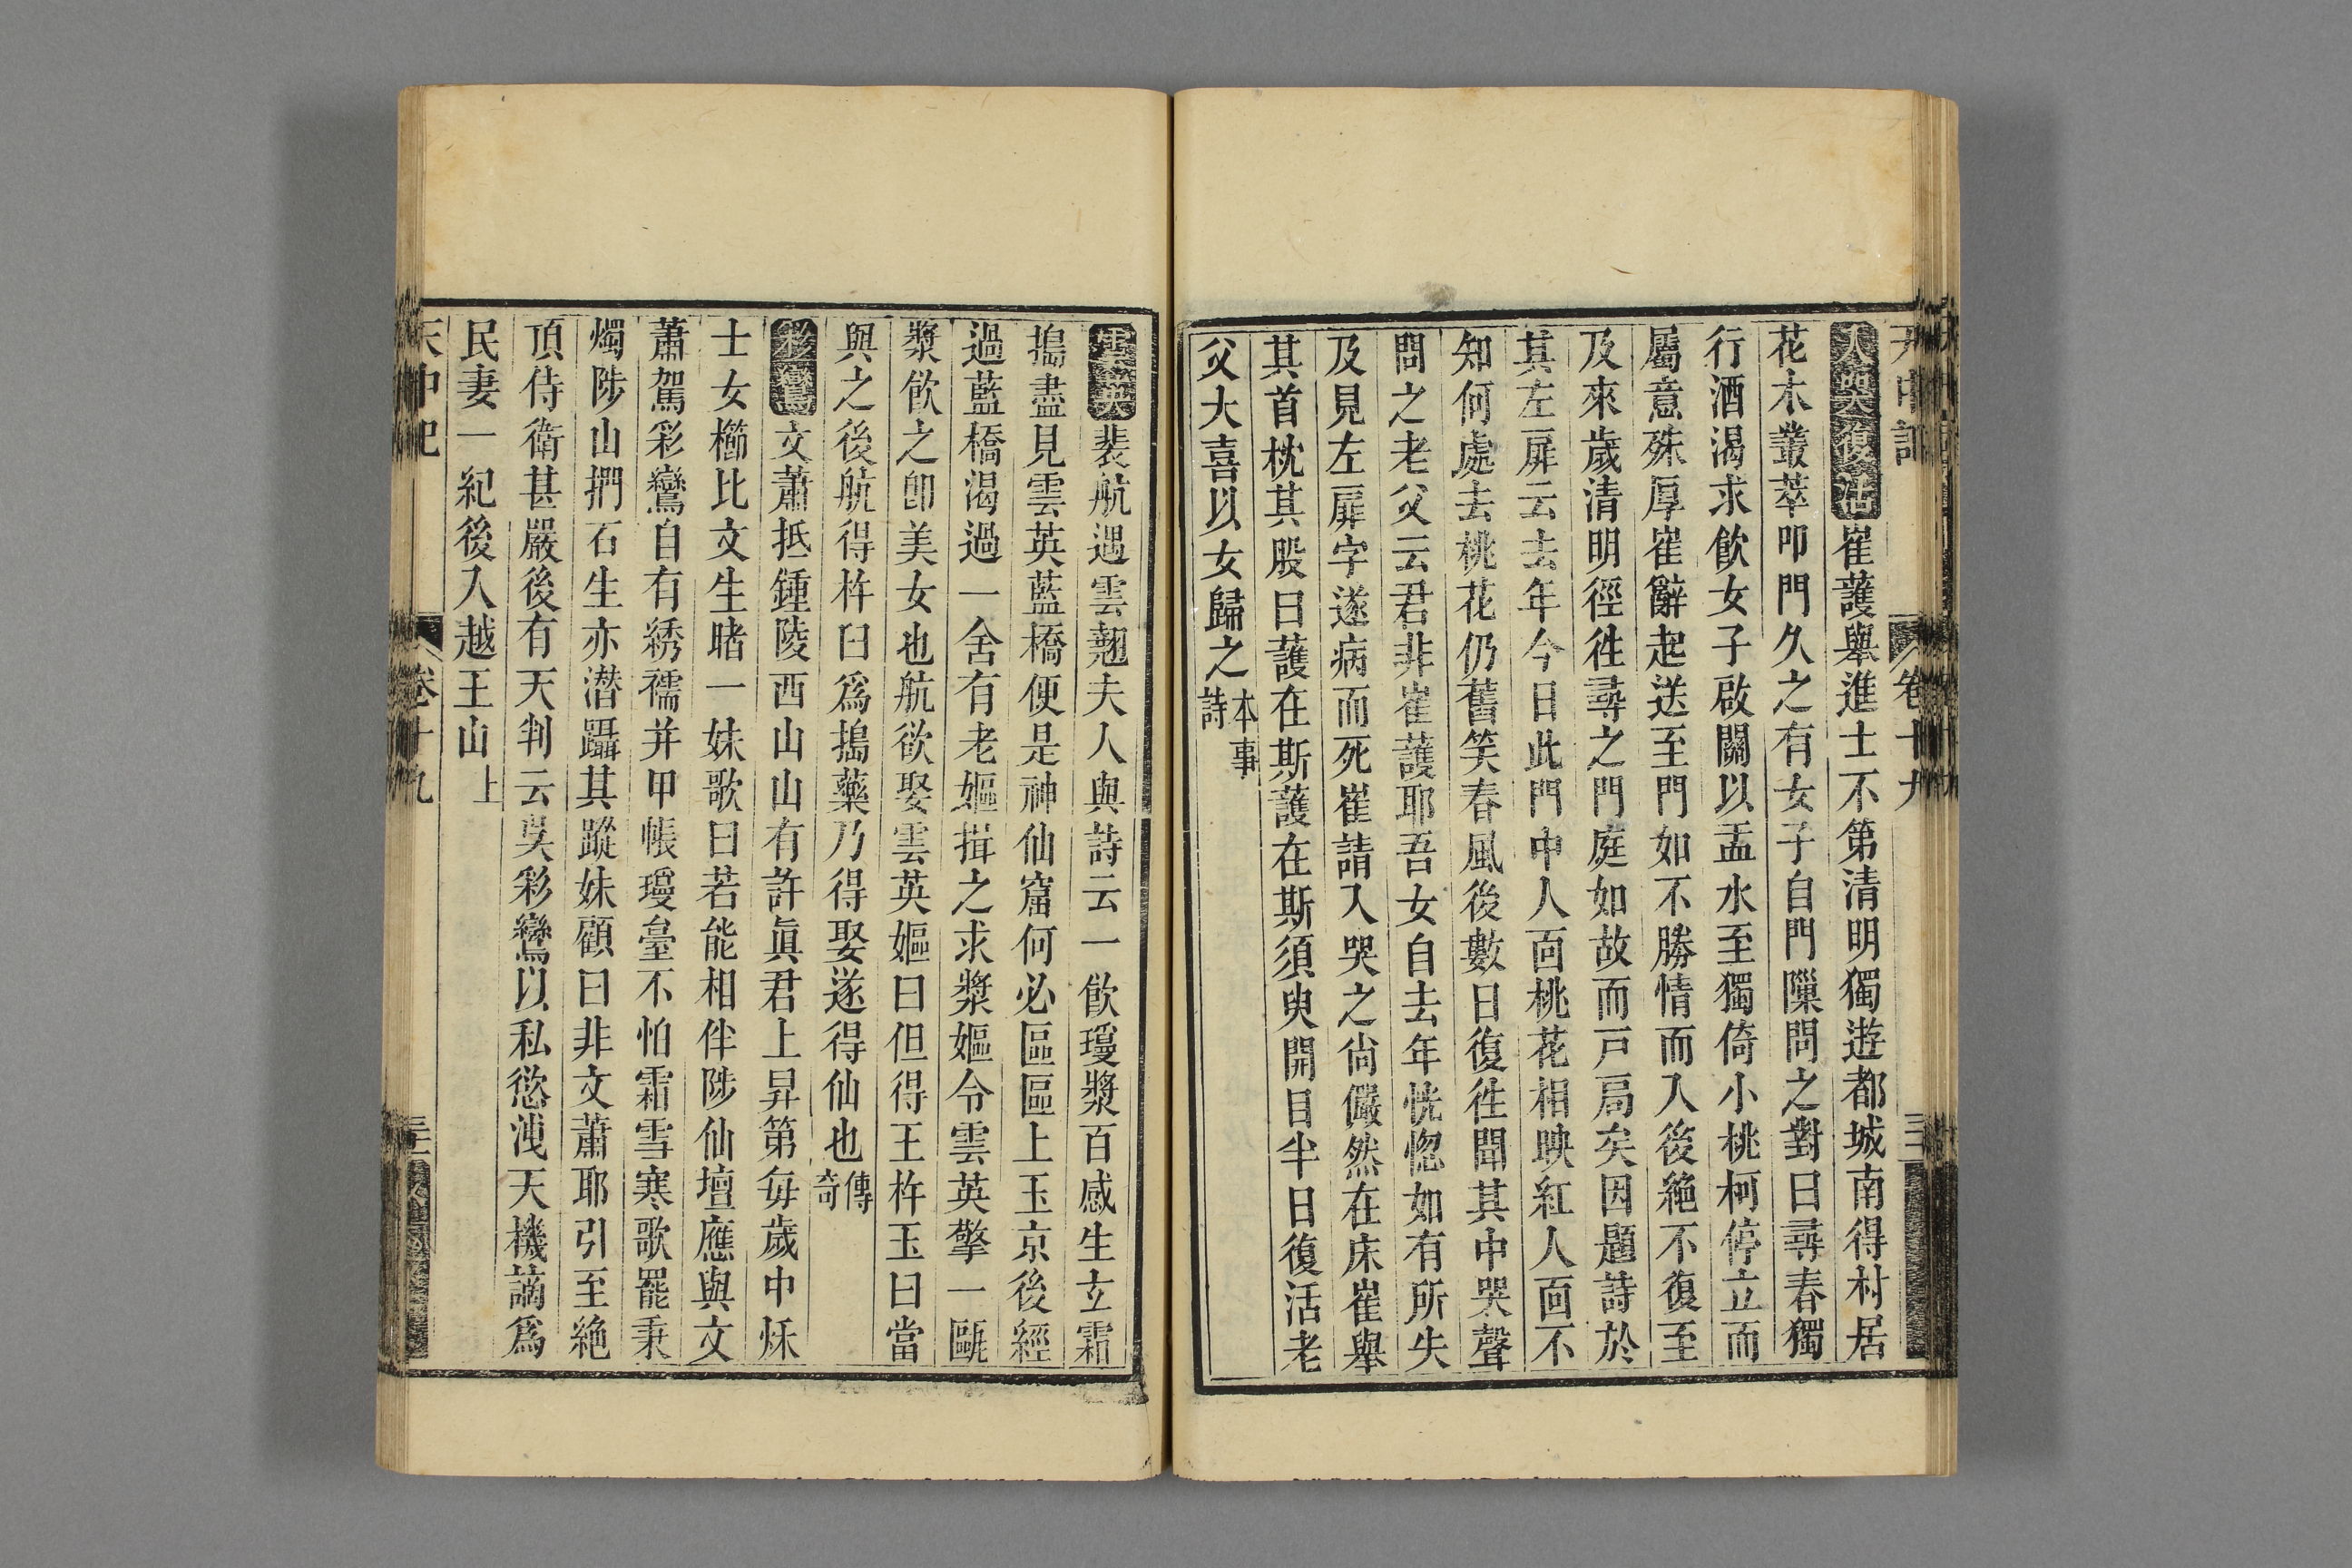 天中記 卷十九 三十
入哭復活崔護舉進士不第清明獨遊都城南得村居
花木叢萃叩門久之有女子自門隟問之對曰尋春獨
行酒渴求飲女子啟關以盂水至獨倚小桃柯停立而
屬意殊厚崔辭起送至門如不勝情而入後絶不復至
及來歲清明徑徃尋之門庭如故而戸扄矣因題詩於
其左扉云去年今日此門中人面桃花相映紅人面不
知何處去桃花仍舊笑春風後數日復徃聞其中哭聲
問之老父云君非崔護耶吾女自去年恍惚如有所失
及見左扉字遂病而死崔請入哭之尙儼然在床崔舉
其首枕其股曰護在斯護在斯須臾開目半日復活老
父大喜以女歸之本事詩
雲英裴航遇雲翹夫人與詩云一飲瓊漿百感生玄霜
搗盡見雲英藍橋便是神仙窟何必區區上玉京後經
過藍橋渴過一舍有老嫗揖之求漿嫗令雲英擎一甌
漿飲之卽美女也航欲娶雲英嫗曰但得王杵玉曰當
與之後航得杵臼爲搗藥乃得娶遂得仙也傳奇
彩鸞文蕭抵鍾陵西山山有許眞君上昇第每歲中秌
士女櫛比文生睹一妹歌曰若能相伴陟仙壇應與文
蕭駕彩鸞自有綉襦并甲帳瓊臺不怕霜雪寒歌罷秉
燭陟山捫石生亦潜躡其蹤妹顧曰非文蕭耶引至絶
頂侍衛甚嚴後有天判云吳彩鸞以私慾洩天機謫爲
民妻一紀後入越王山上
天中記 卷十九